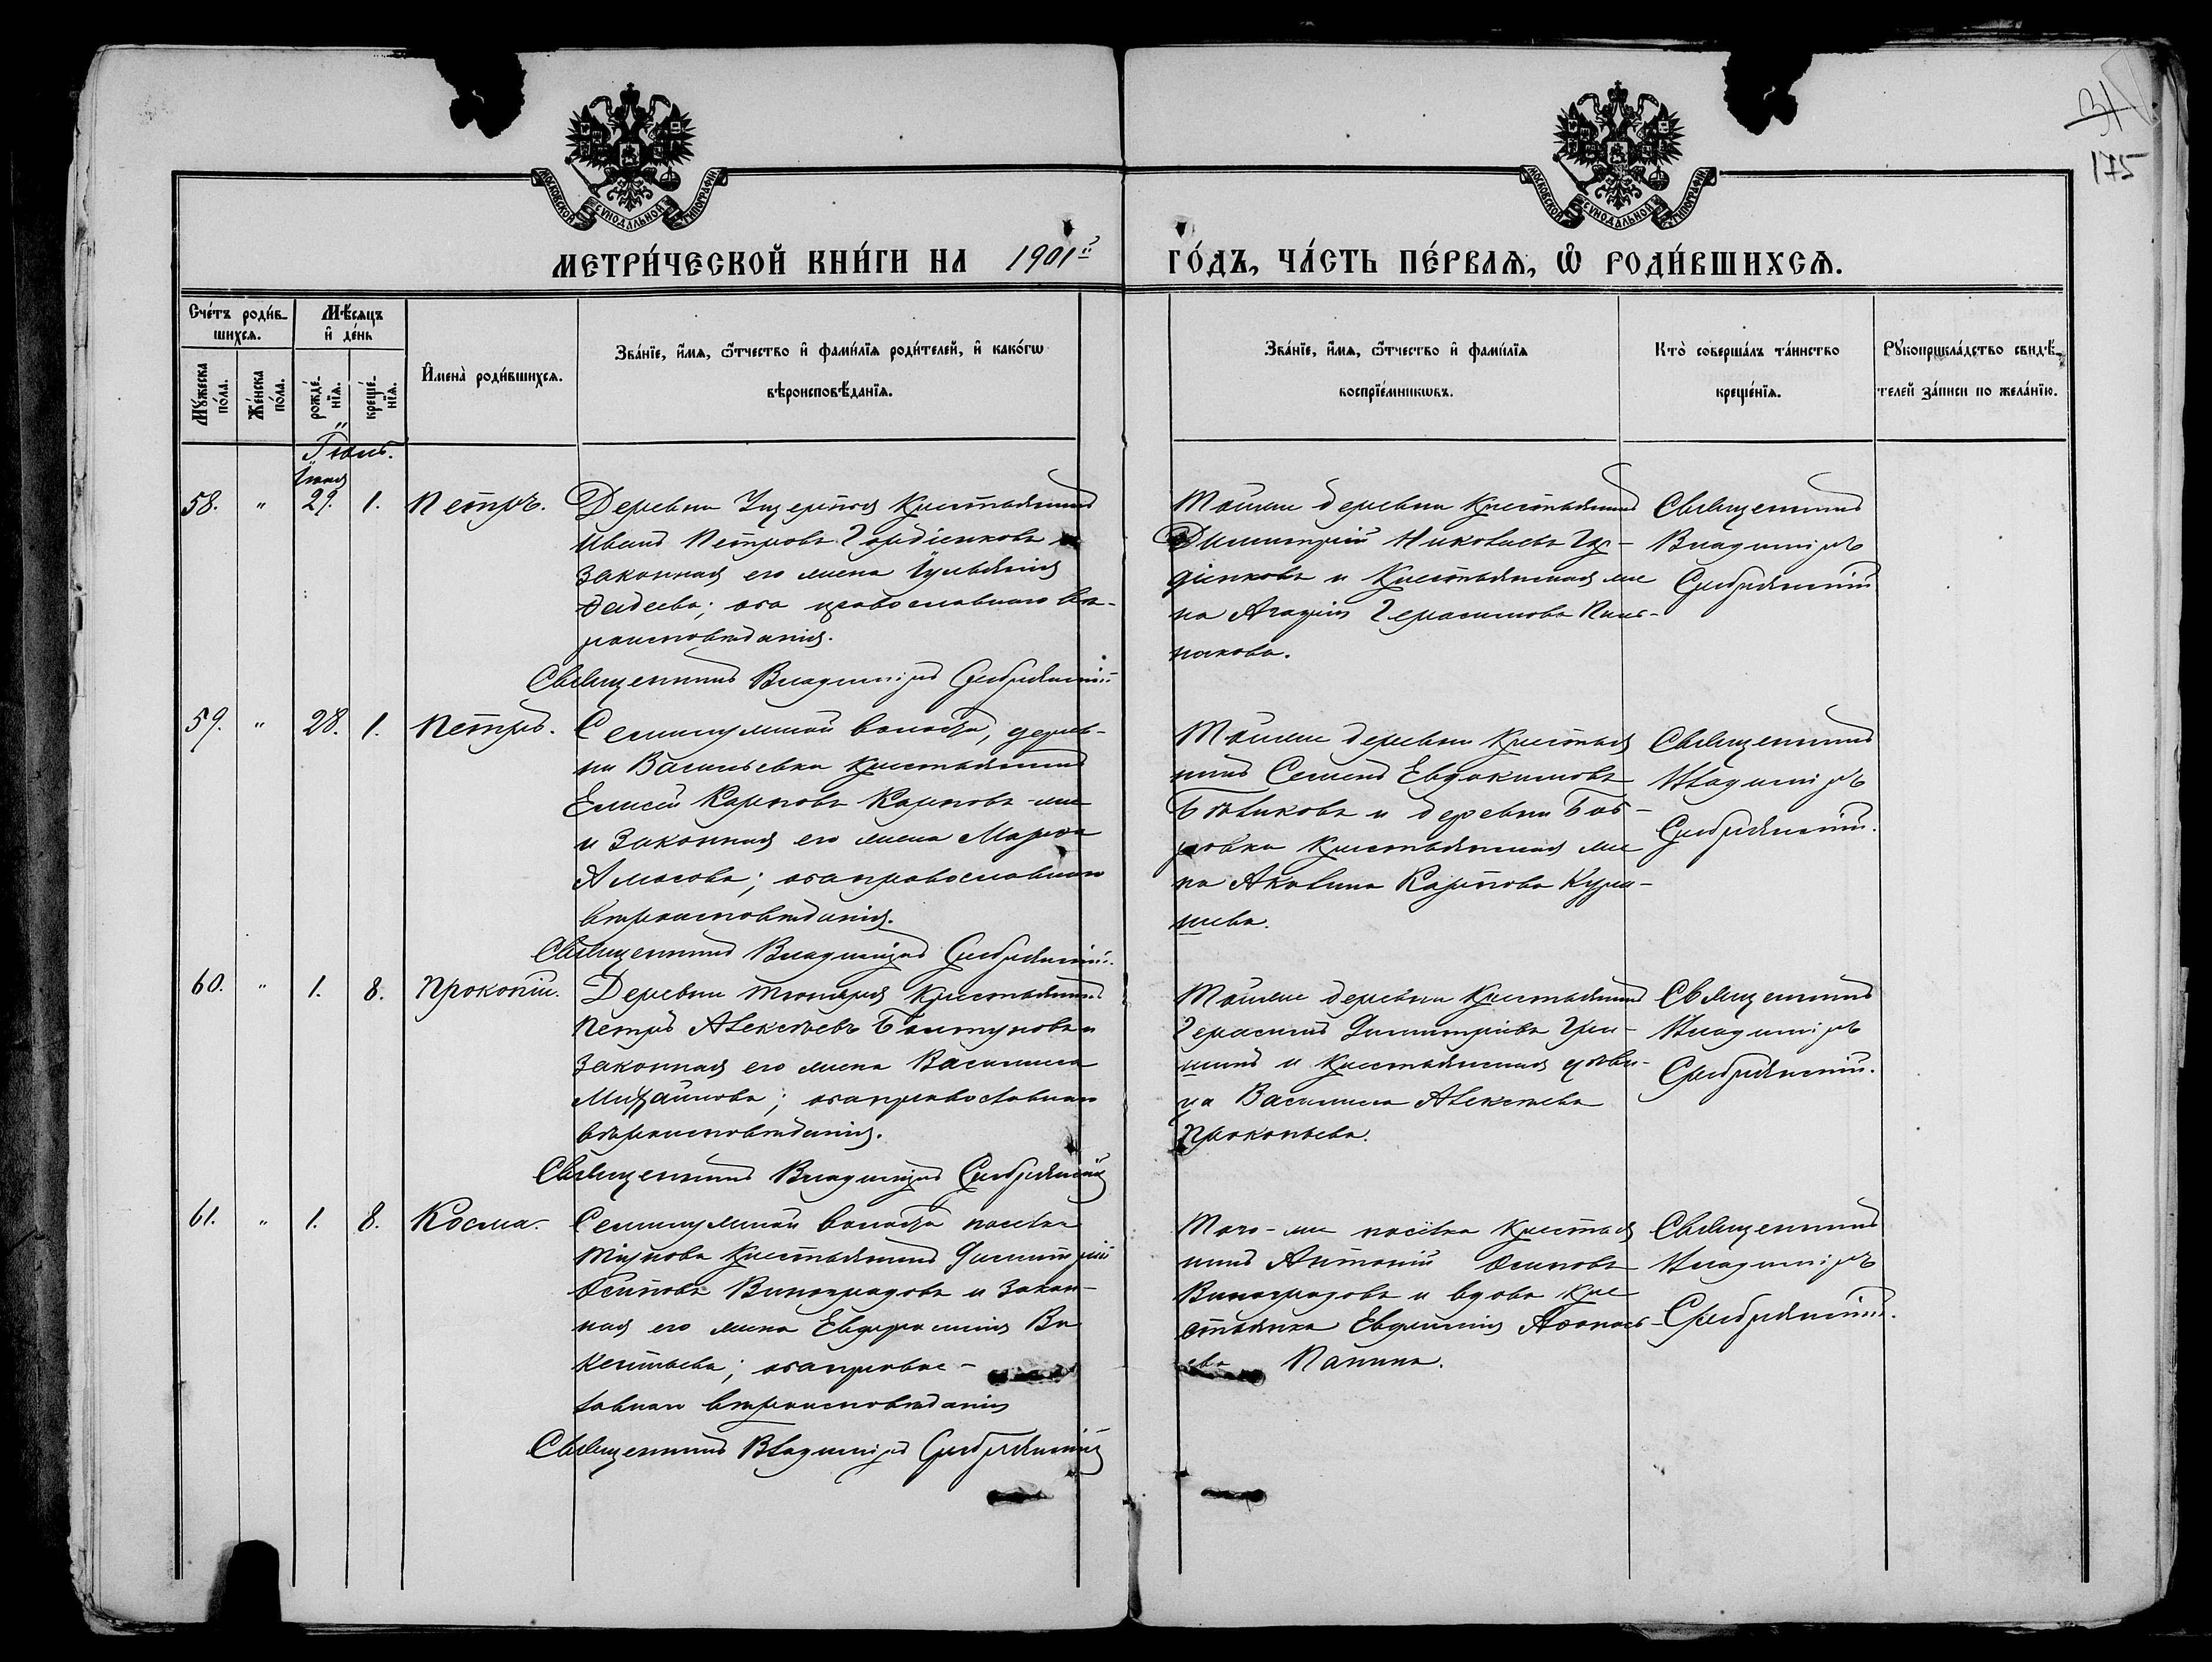 31
175
МОСКОВСКОЙ СѴНОДАЛЬНОЙ ТИПОГРАФІИ
МОСКОВСКОЙ СѴНОДАЛЬНОЙ ТИПОГРАФІИ
МЕТРИ́ЧЕСКОЙ КНИ́ГИ НА 1901й ГО́ДЪ, ЧА́СТЬ ПЕ́РВАѦ, Ѡ҆ РОДИ́ВШИХСѦ.
Сче́тъ роди́в-
шихсѧ.
Мѣ́сѧцъ
и҆ де́нь
Мꙋ́жеска
по́ла.
Же́нска
по́ла.
рожде́-
нїѧ.
креще́-
нїѧ.
И҆мена̀ роди́вшихсѧ.
Зва́нїе, и҆́мѧ, ѻ҆́тчество и҆ фами́лїѧ роди́телей, и҆ како́гѡ
вѣроисповѣ́данїѧ.
Зва́нїе, и҆́мѧ, ѻ҆́тчество и҆ фами́лїѧ
воспрїе́мникѡвъ.
Кто̀ соверша́лъ та́инство
креще́нїѧ.
Рꙋкоприкла́дство свидѣ́-
телей за́писи по жела́нїю.
Іюль.
Іюня
58. " 29. 1. Петръ.
Деревни крестьянинъ
Иванъ Петровъ Гордіенковъ и
законная его жена Іуліанія
Фадеева; оба православнаго вѣ-
роисповѣданія.
Священникъ Владиміръ Серебрянскій
Той-же деревни крестьянинъ
Димитрій Николаевъ Гор-
діенковъ и крестьянская же
на Агафія Герасимова
Священникъ
Владиміръ
Серебрянскій
59. " 28. 1. Петръ.
волости, дерев-
ни Васильевки крестьянинъ
Елисей Карповъ Карповъ-же
и законная его жена Марѳа
Амосова; оба православнаго
вѣроисповѣданія.
Священникъ Владиміръ Серебрянскій.
Той-же деревни крестья
нинъ Семенъ Евдокимовъ
Бѣликовъ и деревни Боб-
ровки крестьянская же
на Акилина Карпова
Священникъ
Владиміръ
Серебрянскій.
60. " 1. 8. Прокопій.
Деревни крестьянинъ
Петръ Алексѣевъ и
законная его жена Василиса
Михайлова; оба православнаго
вѣроисповѣданія.
Священникъ Владиміръ Серебрянскій
Той-же деревни крестьянинъ
Герасимъ Димитріевъ Гри-
шинъ и крестьянская дѣви-
ца Василиса Алексѣева
Прокопьева.
Священникъ
Владиміръ
Серебрянскій.
61. " 1. 8. Косма.
волости поселка
крестьянинъ Димитрій
Осиповъ Виноградовъ и закон-
ная его жена Евфросинія Ви
кентьева; оба правос-
лавнаго вѣроисповѣданія
Священникъ Владиміръ Серебрянскій
Того-же поселка крестья
нинъ Антоній Осиповъ
Виноградовъ и вдова кре
стьянка Евфимія Аѳанась-
ева Панина.
Священникъ
Владиміръ
Серебрянскій.